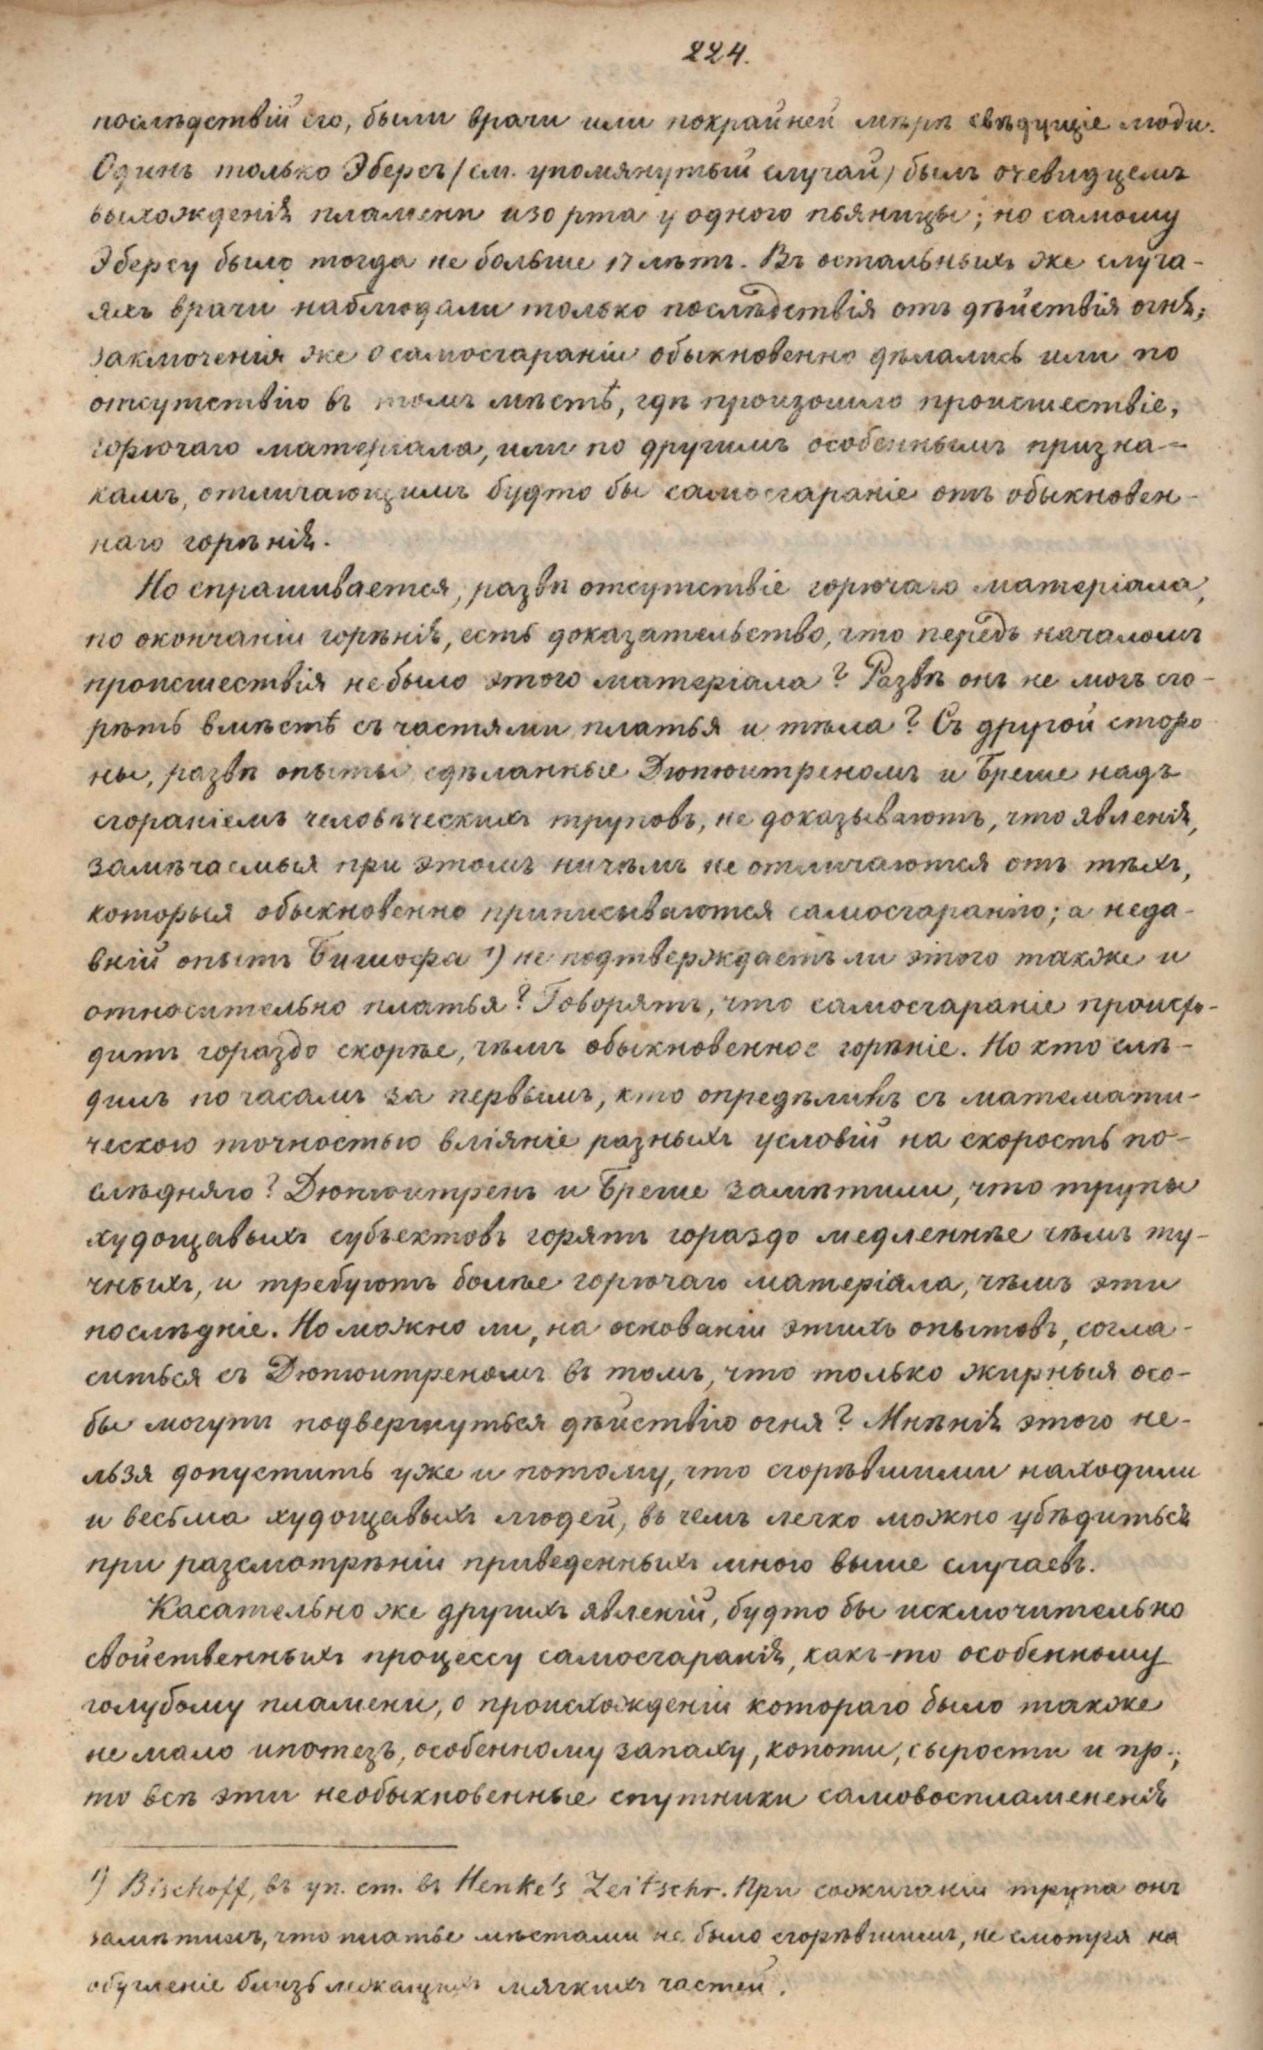 224.
послѣдствій его, были врачи или покрайней мѣрѣ свѣдущіе люди.
Одинъ только Эберсъ (см. упомянутый случай) былъ очевидцемъ
выхожденія пламени изо рта у одного пьяницы; но самому
Эберсу было тогда не больше 17 лѣтъ. Въ остальныхъ же случа-
яхъ врачи наблюдали только послѣдствія отъ дѣйствія огня;
заключенія же о самосгараніи обыкновенно дѣлались или по
отсутствію въ томъ мѣстѣ, гдѣ произошло происшествіе,
горючаго матеріала, или по другимъ особеннымъ призна-
камъ, отличающимъ будто бы самосгараніе отъ обыкновен-
наго горѣнія.
Но спрашивается, развѣ отсутствіе горючаго матеріала,
по окончаніи горѣнія, есть доказательство, что передъ началомъ
происшествія небыло этого матеріала? Развѣ онъ не могъ сго-
рѣть вмѣстѣ съ частями платья и тѣла? Съ другой сторо
ны, развѣ опыты сдѣланные Дюпюитреномъ и Бреше надъ
сгораніемъ человѣческихъ труповъ, не доказываютъ, что явленія,
замѣчаемыя при этомъ ничѣмъ не отличаются отъ тѣхъ,
которыя обыкновенно приписываются самосгаранію; а неда-
вній опытъ Бишофа ¹) не подтверждаетъ ли этого также и
относительно платья? Говорятъ, что самосгараніе происхо-
дитъ гораздо скорѣе, чѣмъ обыкновенное горѣніе. Но кто слѣ-
дилъ по часамъ за первымъ, кто опредѣлилъ съ математи-
ческою точностью вліяніе разныхъ условій на скорость по-
слѣдняго? Дюпюитренъ и Бреше замѣтили, что трупы
худощавыхъ субъектовъ горятъ гораздо медленнѣе чѣмъ ту-
чныхъ, и требуютъ болѣе горючаго матеріала, чѣмъ эти
послѣдніе. Но можно ли, на основаніи этихъ опытовъ, согла-
ситься съ Дюпюитреномъ въ томъ, что только жирныя осо-
бы могутъ подвергнуться дѣйствію огня? Мнѣнія этого не-
льзя допустить уже и потому, что сгорѣвшими находили
и весьма худощавыхъ людей, въ чемъ легко можно убѣдиться
при разсмотрѣніи приведенныхъ мною выше случаевъ.
Касательно же другихъ явленій, будто бы исключительно
свойственныхъ процессу самосгаранія, какъ-то особенному
голубому пламени, о происхожденіи котораго было также
не мало ипотезъ, особенному запаху, копоти, сырости и пр.;
то всѣ эти необыкновенные спутники самовоспламененія
¹) Bischoff, въ уп. ст. въ Henke's Zeitschr. При сожиганіи трупа онъ
замѣтилъ, что платье мѣстами не было сгорѣвшимъ, не смотря на
обугленіе близь лежащихъ мягкихъ частей.